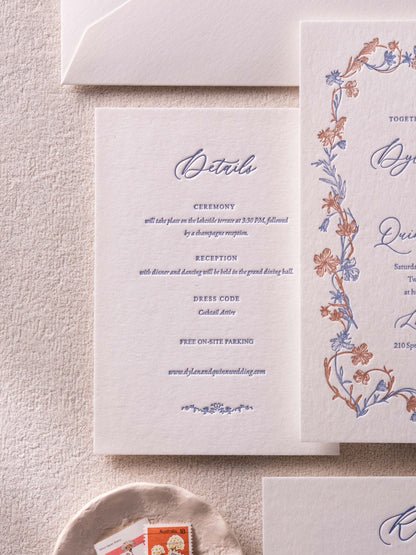 Details
CEREMONY
will take place on the lakeside terrace at 3:30 PM, followed
by a champagne reception.
RECEPTION
with dinner and dancing will be held in the grand dining hall.
DRESS CODE
Cocktail Attire
FREE ON-SITE PARKING
www.dylanandquinnwedding.com
TOGETHE
Dyl
Quin
Saturda
Tw
at h
L
210 Spr
K
Australia